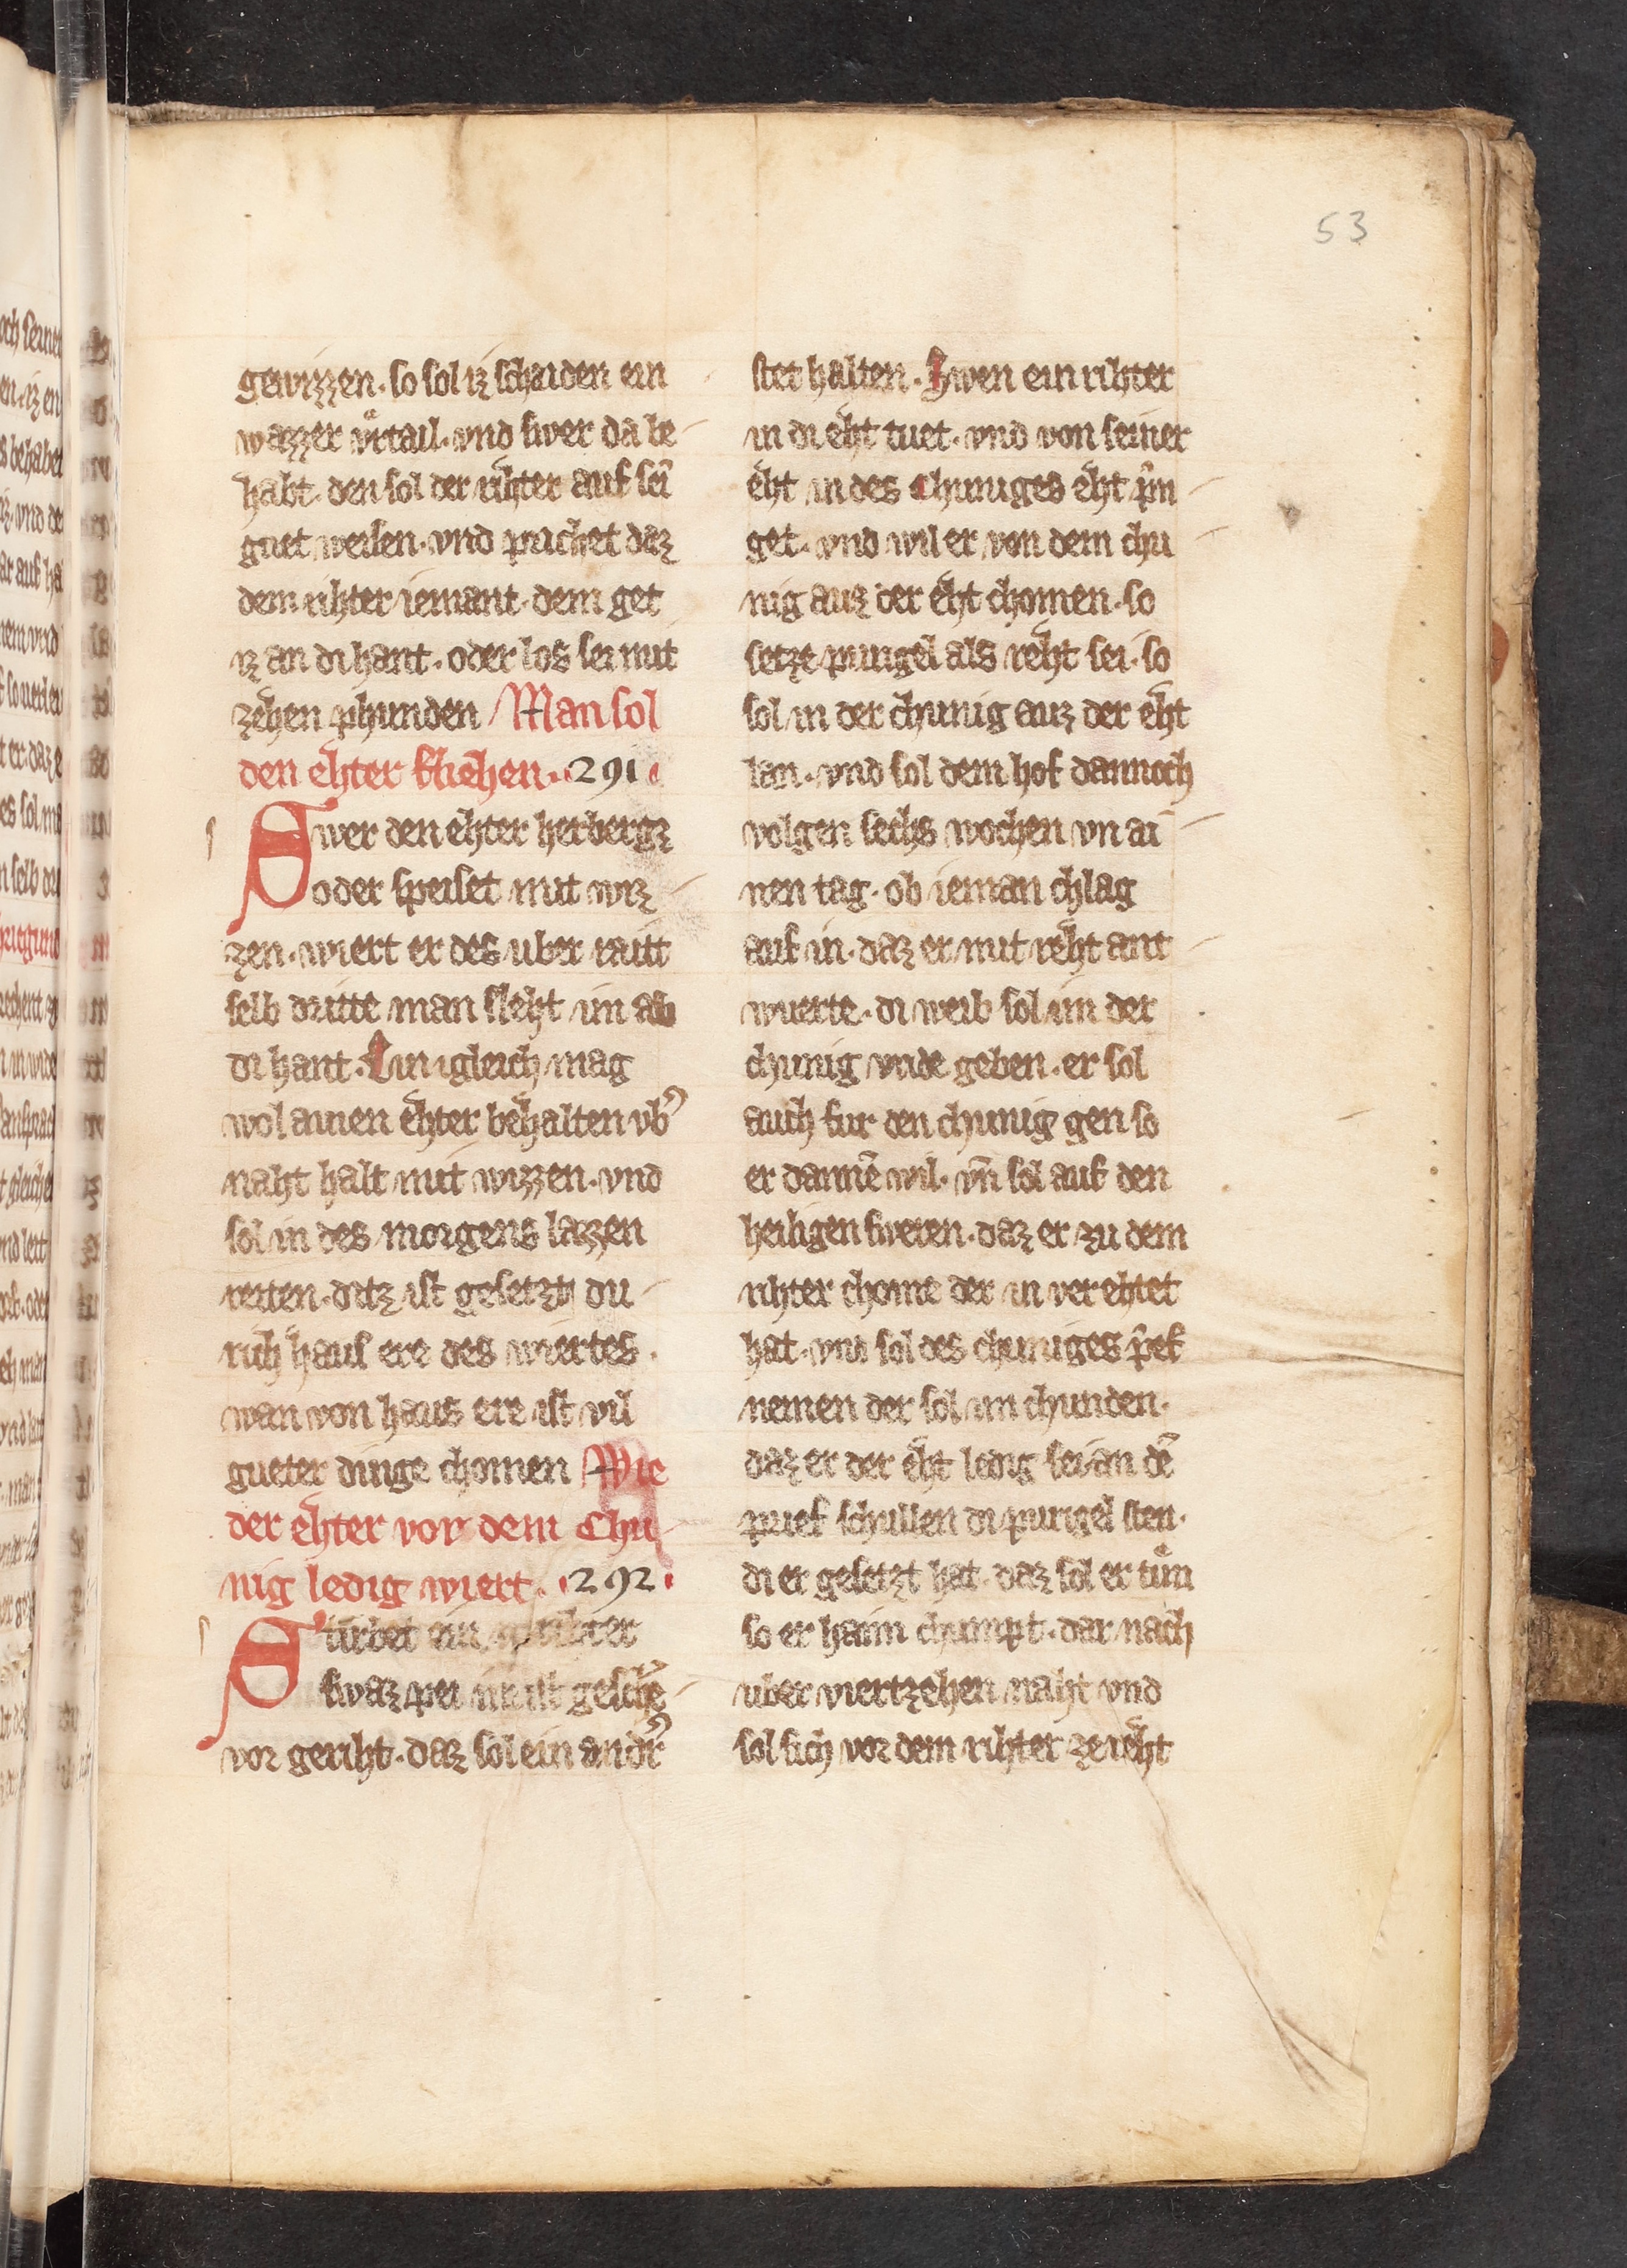 53
gewizzen · so sol iz schaiden ein
wazzer vrtail · vnd swer da be
habt · den sol der rihter auf sei̅
guet weisen · vnd prichet daz
dem rihter iemant · dem get
iz an di hant · oder los sei mit
zehen phunden Man sol
den ehter fliehen · 291 ·
Swer den ehter herbergt
oder speiset mit wiz
zen · wiert er des uber rait
selb dritte man sleht im ab
di hant · Ein igleich mag
wol ainen ehter behalten vb̾
naht halt mit wizzen · vnd
sol in des morgens lazzen
reiten · datz ist gesetzt du
rich haus ere des wiertes ·
wan von haus ere ist vil
gueter dinge chomen Wie
der ehter vor dem Chu
nig ledig wiert · 292 ·
Stirbet ein rihter
swaz pei im ist gesche̅
vor geriht · daz sol ein andr̾
stet halten · Swen ein rihter
in di eht tuet · vnd von seiner
eht in des chuniges eht prin
get · vnd wil er von dem chu
nig auz der eht chomen · so
setze purigel als reht sei · so
sol in der chunig auz der eht
lan · vnd sol dem hof dannoch
volgen sechs wochen vn ai
nen tag · ob ieman chlag
auf in · daz er mit reht ant
wuerte · di weib sol im der
chunig vride geben · er sol
auch fur den chunig gen so
er danne̅ wil · vn̅ sol auf den
heiligen sweren · daz er zu dem
rihter chome der in verehtet
hat · vnd sol des chuniges prief
nemen der sol im chunden ·
daz er der eht ledig sei · an de̅
prief schullen di purigel sten ·
di er gesetzt hat · daz sol er tun
so er haim chumpt · dar nach
uber viertzehen naht vnd
sol sich vor dem rihter ze reht